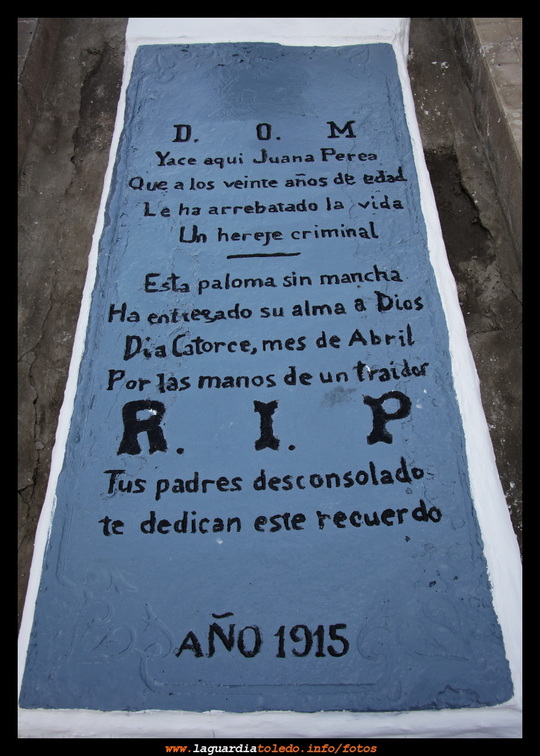 D. O. M
Yace aqui Juana Perea
Que a los veinte años de edad
Le ha arrebatado la vida
Un hereje criminal
Esta paloma sin mancha
Ha entregado su alma a Dios
Dia Catorce, mes de Abril
Por las manos de un traidor
R. I. P
Tus padres desconsolado
te dedican este recuerdo
AÑO 1915
www.laguardiatoledo.info/fotos